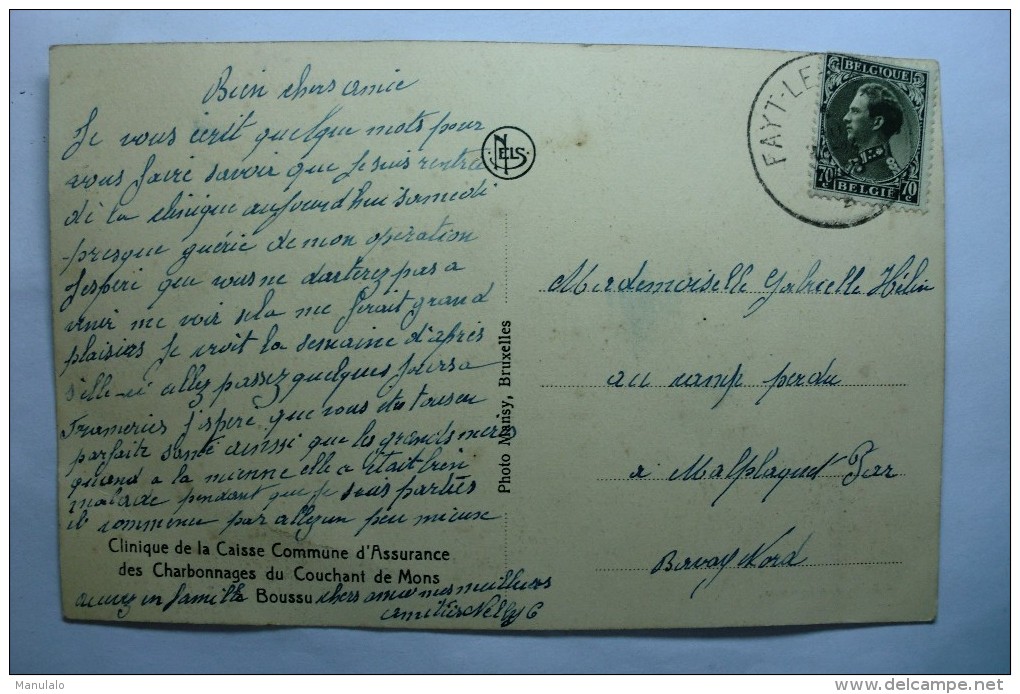 Bien chers amie
Je vous écrit quelque mots pour
vous faire savoir que je suis rentré
de la clinique aujourd'hui samedi
presque guérie de mon operation
J'espère que vous ne darterez pas a
venir me voir sela me ferait grand
plaisirs Je croit la semaine d'après
celle-ci allez passez quelques jours a
Frameries J'espère que vous etes tous en
parfaite santé aussi que les grands mères
quand a la mienne elle a était bien
malade pendant que je suis parties
il commence par allez un peu mieux
Clinique de la Caisse Commune d'Assurance
des Charbonnages du Couchant de Mons
Boussu
en famille chers amie mes meilleurs
amitiés Nelly G
NELS
Photo Manisy, Bruxelles
FAYT-LE
BELGIQUE
70 c
70 c
BELGIË
Mademoiselle Gabrielle Hélin
au camp perdu
a Malplaquet Par
Bavay Nord
Manulalo
http://www.delcampe.net